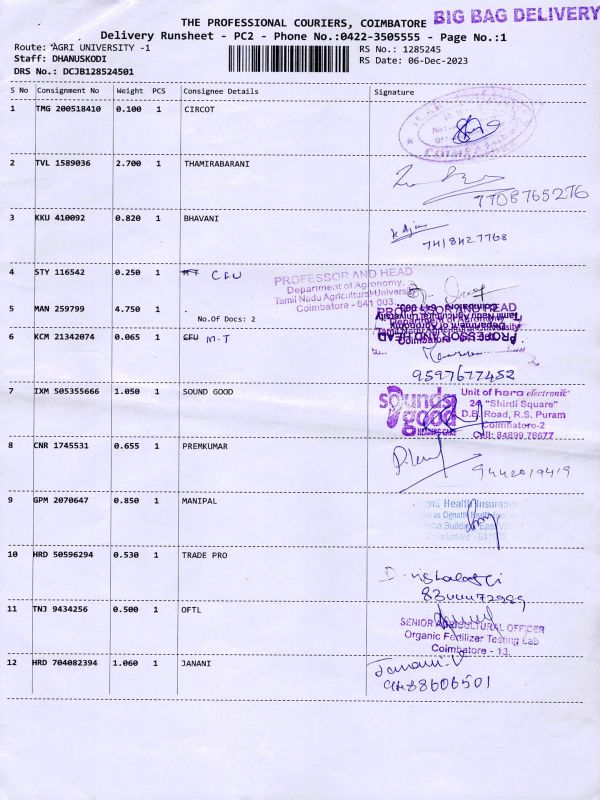 THE PROFESSIONAL COURIERS, COIMBATORE BIG BAG DELIVERY
Delivery Runsheet - PC2 - Phone No.:0422-3505555 - Page No.:1
Route: AGRI UNIVERSITY -1 RS No.: 1285245
Staff: DHANUSKODI RS Date: 06-Dec-2023
DRS No.: DCJB128524501
S No Consignment No Weight PCS Consignee Details Signature
1 TMG 200518410 0.100 1 CIRCOT
COIMBATORE
2 TVL 1589036 2.700 1 THAMIRABARANI
7708765276
3 KKU 410092 0.820 1 BHAVANI
7418427768
4 STY 116542 0.250 1 MT CFU
PROFESSOR AND HEAD
Department of Agronomy,
Tamil Nadu Agricultural University
Coimbatore - 641 003.
5 MAN 259799 4.750 1
No.Of Docs: 2
PROFESSOR AND HEAD
Department of Agronomy
Tamil Nadu Agricultural University
6 KCM 21342074 0.065 1 CFU M.T
9597677452
7 IXM 505355666 1.050 1 SOUND GOOD
sounds good
HEARING CARE
Unit of hero electronic
24 "Shirdi Square"
D.B. Road, R.S. Puram
Coimbatore-2
Cell: 84899 78677
8 CNR 1745531 0.655 1 PREMKUMAR
9442019419
9 GPM 2070647 0.850 1 MANIPAL
Health Insurance
Coimbatore - 641002
10 HRD 50596294 0.530 1 TRADE PRO
11 TNJ 9434256 0.500 1 OFTL
SENIOR AGRICULTURAL OFFICER
Organic Fertilizer Testing Lab
Coimbatore - 13.
12 HRD 704082394 1.060 1 JANANI
Janani.V
9488606501